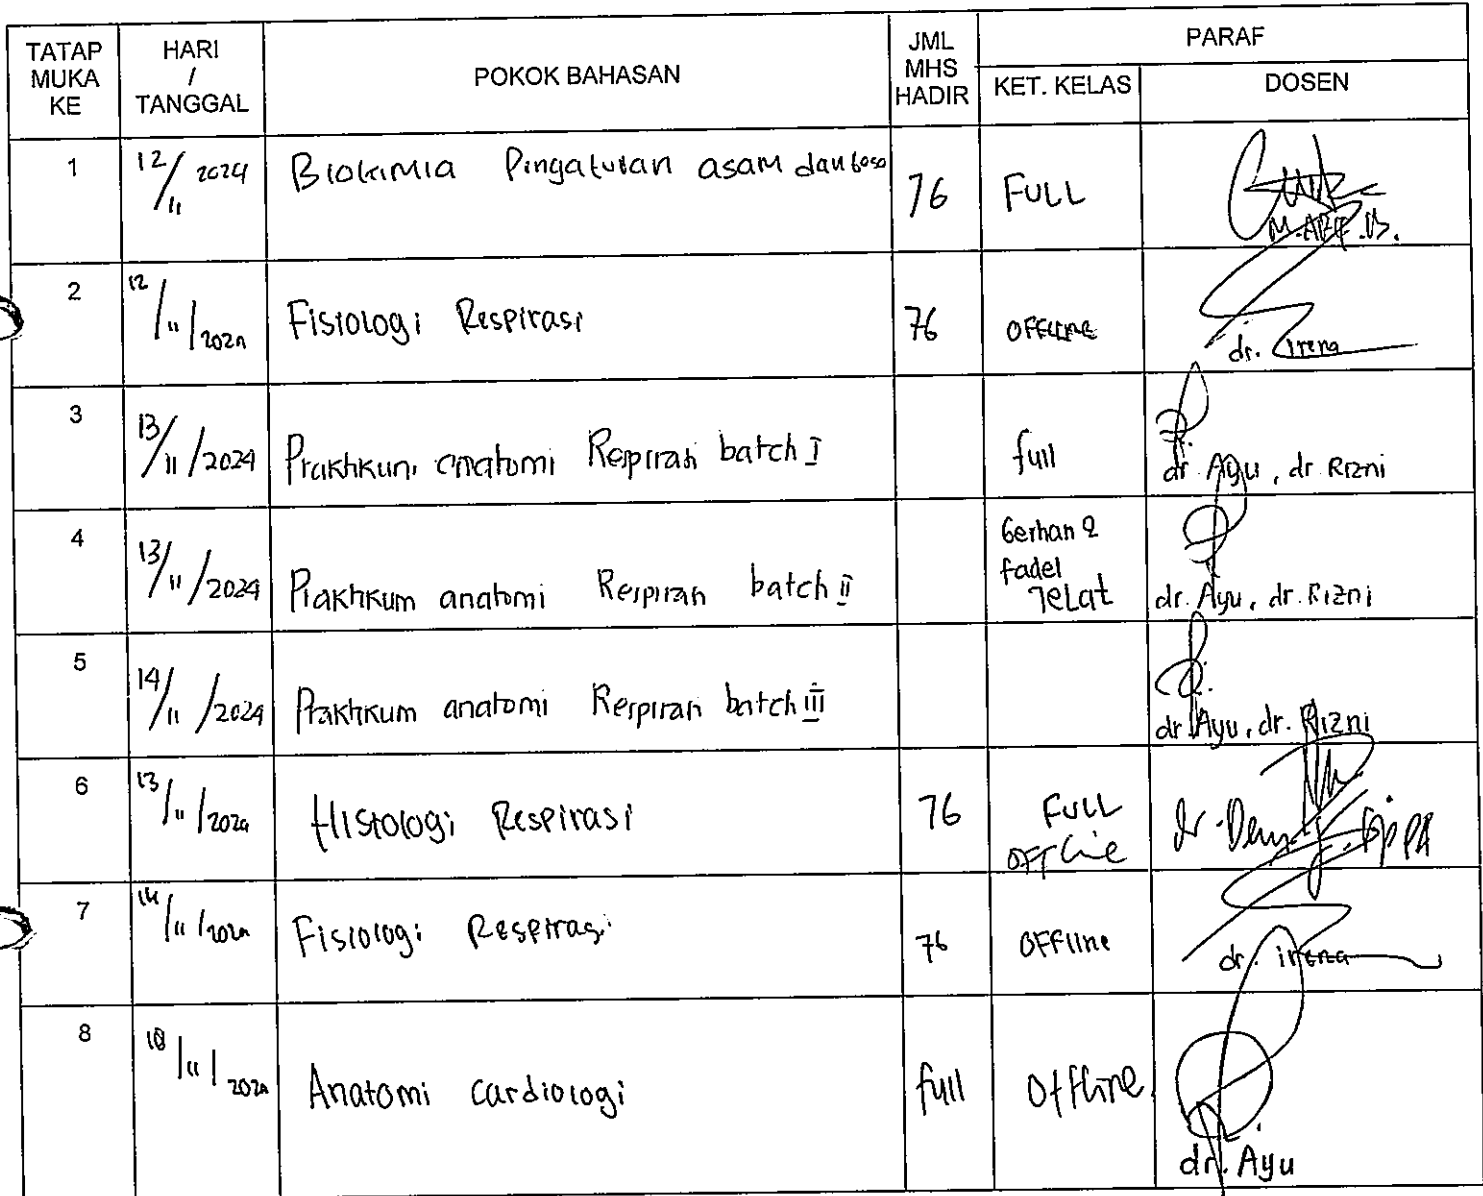 TATAP MUKA KE HARI / TANGGAL POKOK BAHASAN JML MHS HADIR PARAF
KET. KELAS DOSEN
1 12/11 2024 Biokimia Pingaturan asam dan basa 76 FULL
2 12/11/2024 Fisiologi Respirasi 76 OFFLINE dr. Irena
3 13/11/2024 Praktikum anatomi Respirasi batch I full dr. Ayu, dr Rizni
4 13/11/2024 Praktikum anatomi Respirasi batch II fadel Telat dr. Ayu, dr. Rizni
5 14/11/2024 Praktikum anatomi Respirasi batch III dr Ayu, dr. Rizni
6 13/11/2024 Histologi Respirasi 76 FULL OFFline
7 14/11/2024 Fisiologi Respirasi 76 OFFline dr. irena
8 18/11/2024 Anatomi cardiologi full Offline dr. Ayu